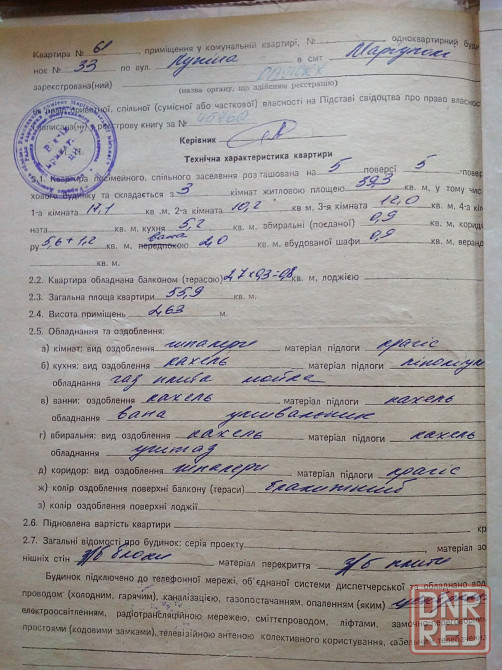 Квартира № 61, приміщення у комунальній квартирі, №, одноквартирний буди
нок № 33 по вул. в смт
зареєстрована(ний)
(назва органу, що здійснює реєстрацію)
приватної, спільної (сумісної або часткової) власності на Підставі свідоцтва про право власнос
записана(ну) реєстрову книгу за №
Керівник
Технічна характеристика квартири
2.1. Квартира посімейного, спільного заселення розташована на 5 поверсі 5 -поверх
хового будинку та складається з 3 кімнат житловою площею 39,3 кв. м, у тому чис
1-а кімната 17,1 кв. м, 2-а кімната 10,2 кв. м, 3-я кімната 12,0 кв. м, 4-а кім
ната кв. м, кухня 5,2 кв. м, вбиральні (поєднаної) 0,9 кв. м, корид
ру 5,6+1,2 кв. м, вана передпокою 2,0 кв. м, вбудованої шафи 0,9 кв. м, веранд
кв. м.
2.2. Квартира обладнана балконом (терасою) 2,7×0,3=0,8 кв. м, лоджією
2.3. Загальна площа квартири 55,9 кв. м.
2.4. Висота приміщень 2,63 м.
2.5. Обладнання та оздоблення:
а) кімнат: вид оздоблення шпалери матеріал підлоги
б) кухня: вид оздоблення кахель матеріал підлоги лінолеум
обладнання газ плита мойка
в) ванни: оздоблення кахель матеріал підлоги кахель
обладнання вана умивальник
г) вбиральня: вид оздоблення кахель матеріал підлоги кахель
обладнання унітаз
д) коридор: вид оздоблення шпалери матеріал підлоги
ж) колір оздоблення поверхні балкону (тераси) блакитний
з) колір оздоблення поверхні лоджії
2.6. Підновлена вартість квартири кр
2.7. Загальні відомості про будинок: серія проекту матеріал зо
нішніх стін з/б блоки матеріал перекриття з/б плити
Будинок підключено до телефонної мережі, об'єднаної системи диспетчерської та обладнано вод
проводом (холодним, гарячим), каналізацією, газопостачанням, опаленням (яким)
електроосвітленням, радіотрансляційною мережею, сміттєпроводом, ліфтами, замочно-переговор
простоями (кодовими замками), телевізійною антеною колективного користування, кабельн
DNR
RED